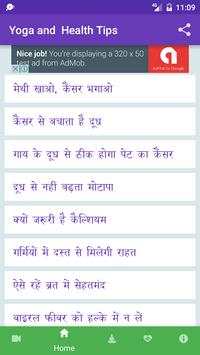 11:09
Yoga and Health Tips
Nice job! You're displaying a 320 x 50
test ad from AdMob.
AdMob by Google
मेथी खाओ, कैंसर भगाओ
कैंसर से बचाता है दूध
गाय के दूध से ठीक होगा पेट का कैंसर
दूध से नहीं बढ़ता मोटापा
क्यों जरूरी है कैल्शियम
गर्मियों में दस्त से मिलेगी राहत
ऐसे रहें व्रत में सेहतमंद
वाइरल फीवर को हल्के में न लें
Home